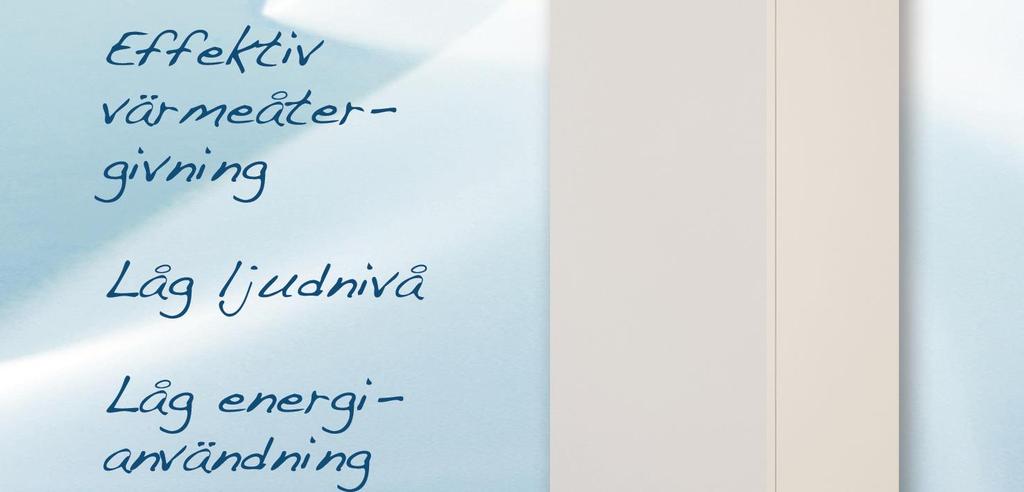 Effektiv
värmeåter-
givning
Låg ljudnivå
Låg energi-
användning